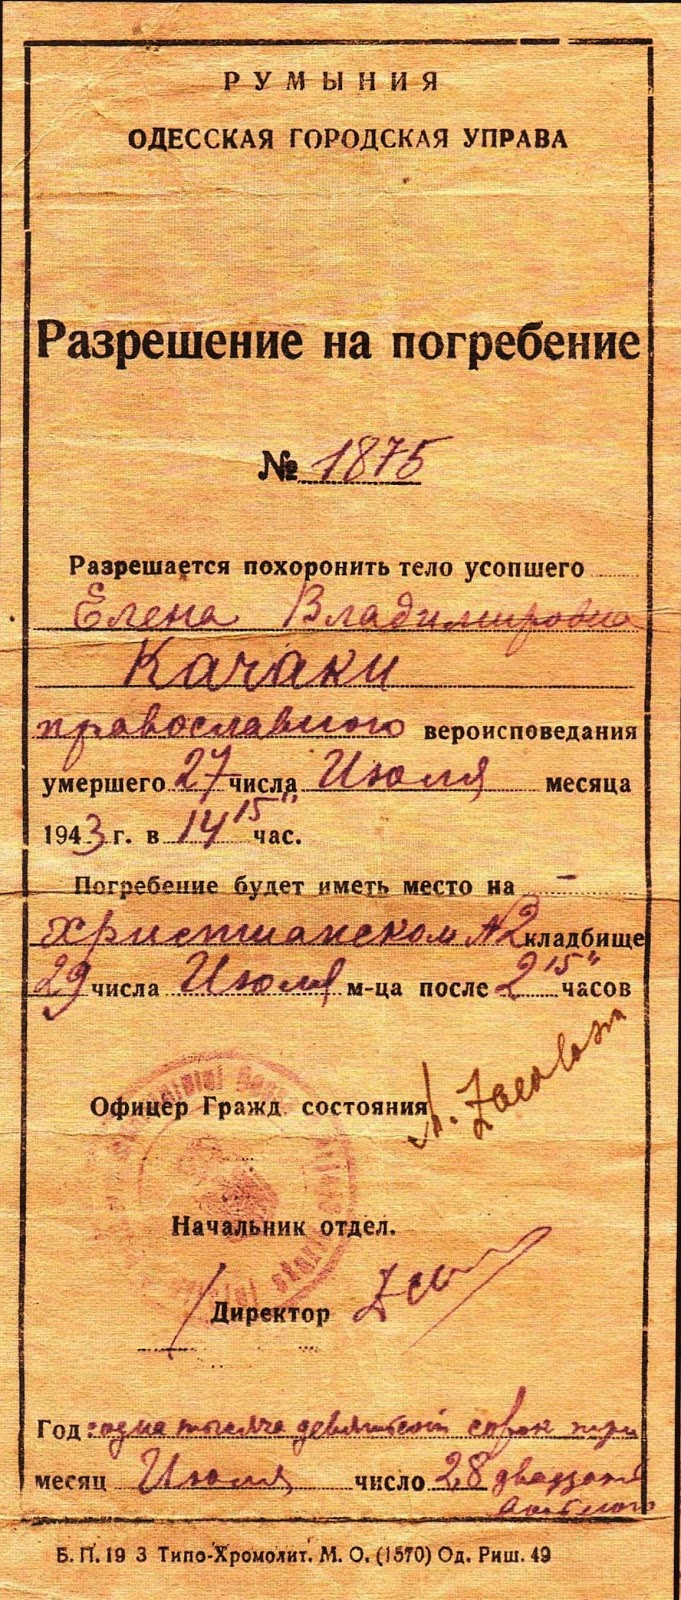 РУМЫНИЯ
ОДЕССКАЯ ГОРОДСКАЯ УПРАВА
Разрешение на погребение
№ 1875
Разрешается похоронить тело усопшего
Елена Владимировна
Качаки
православного вероисповедания
умершего 27 числа Июля месяца
1943 г. в 14 15" час.
Погребение будет иметь место на –
Христианском №2 кладбище
29 числа Июля м-ца после 2 15" часов
Офицер Гражд состояния
Начальник отдел.
Директор
Год: одна тысяча девятьсот сорок три
месяц Июля число 28 двадцать
восьмого
Б. П. 19 3 Типо-Хромолит. М. О. (1570) Од. Риш. 49